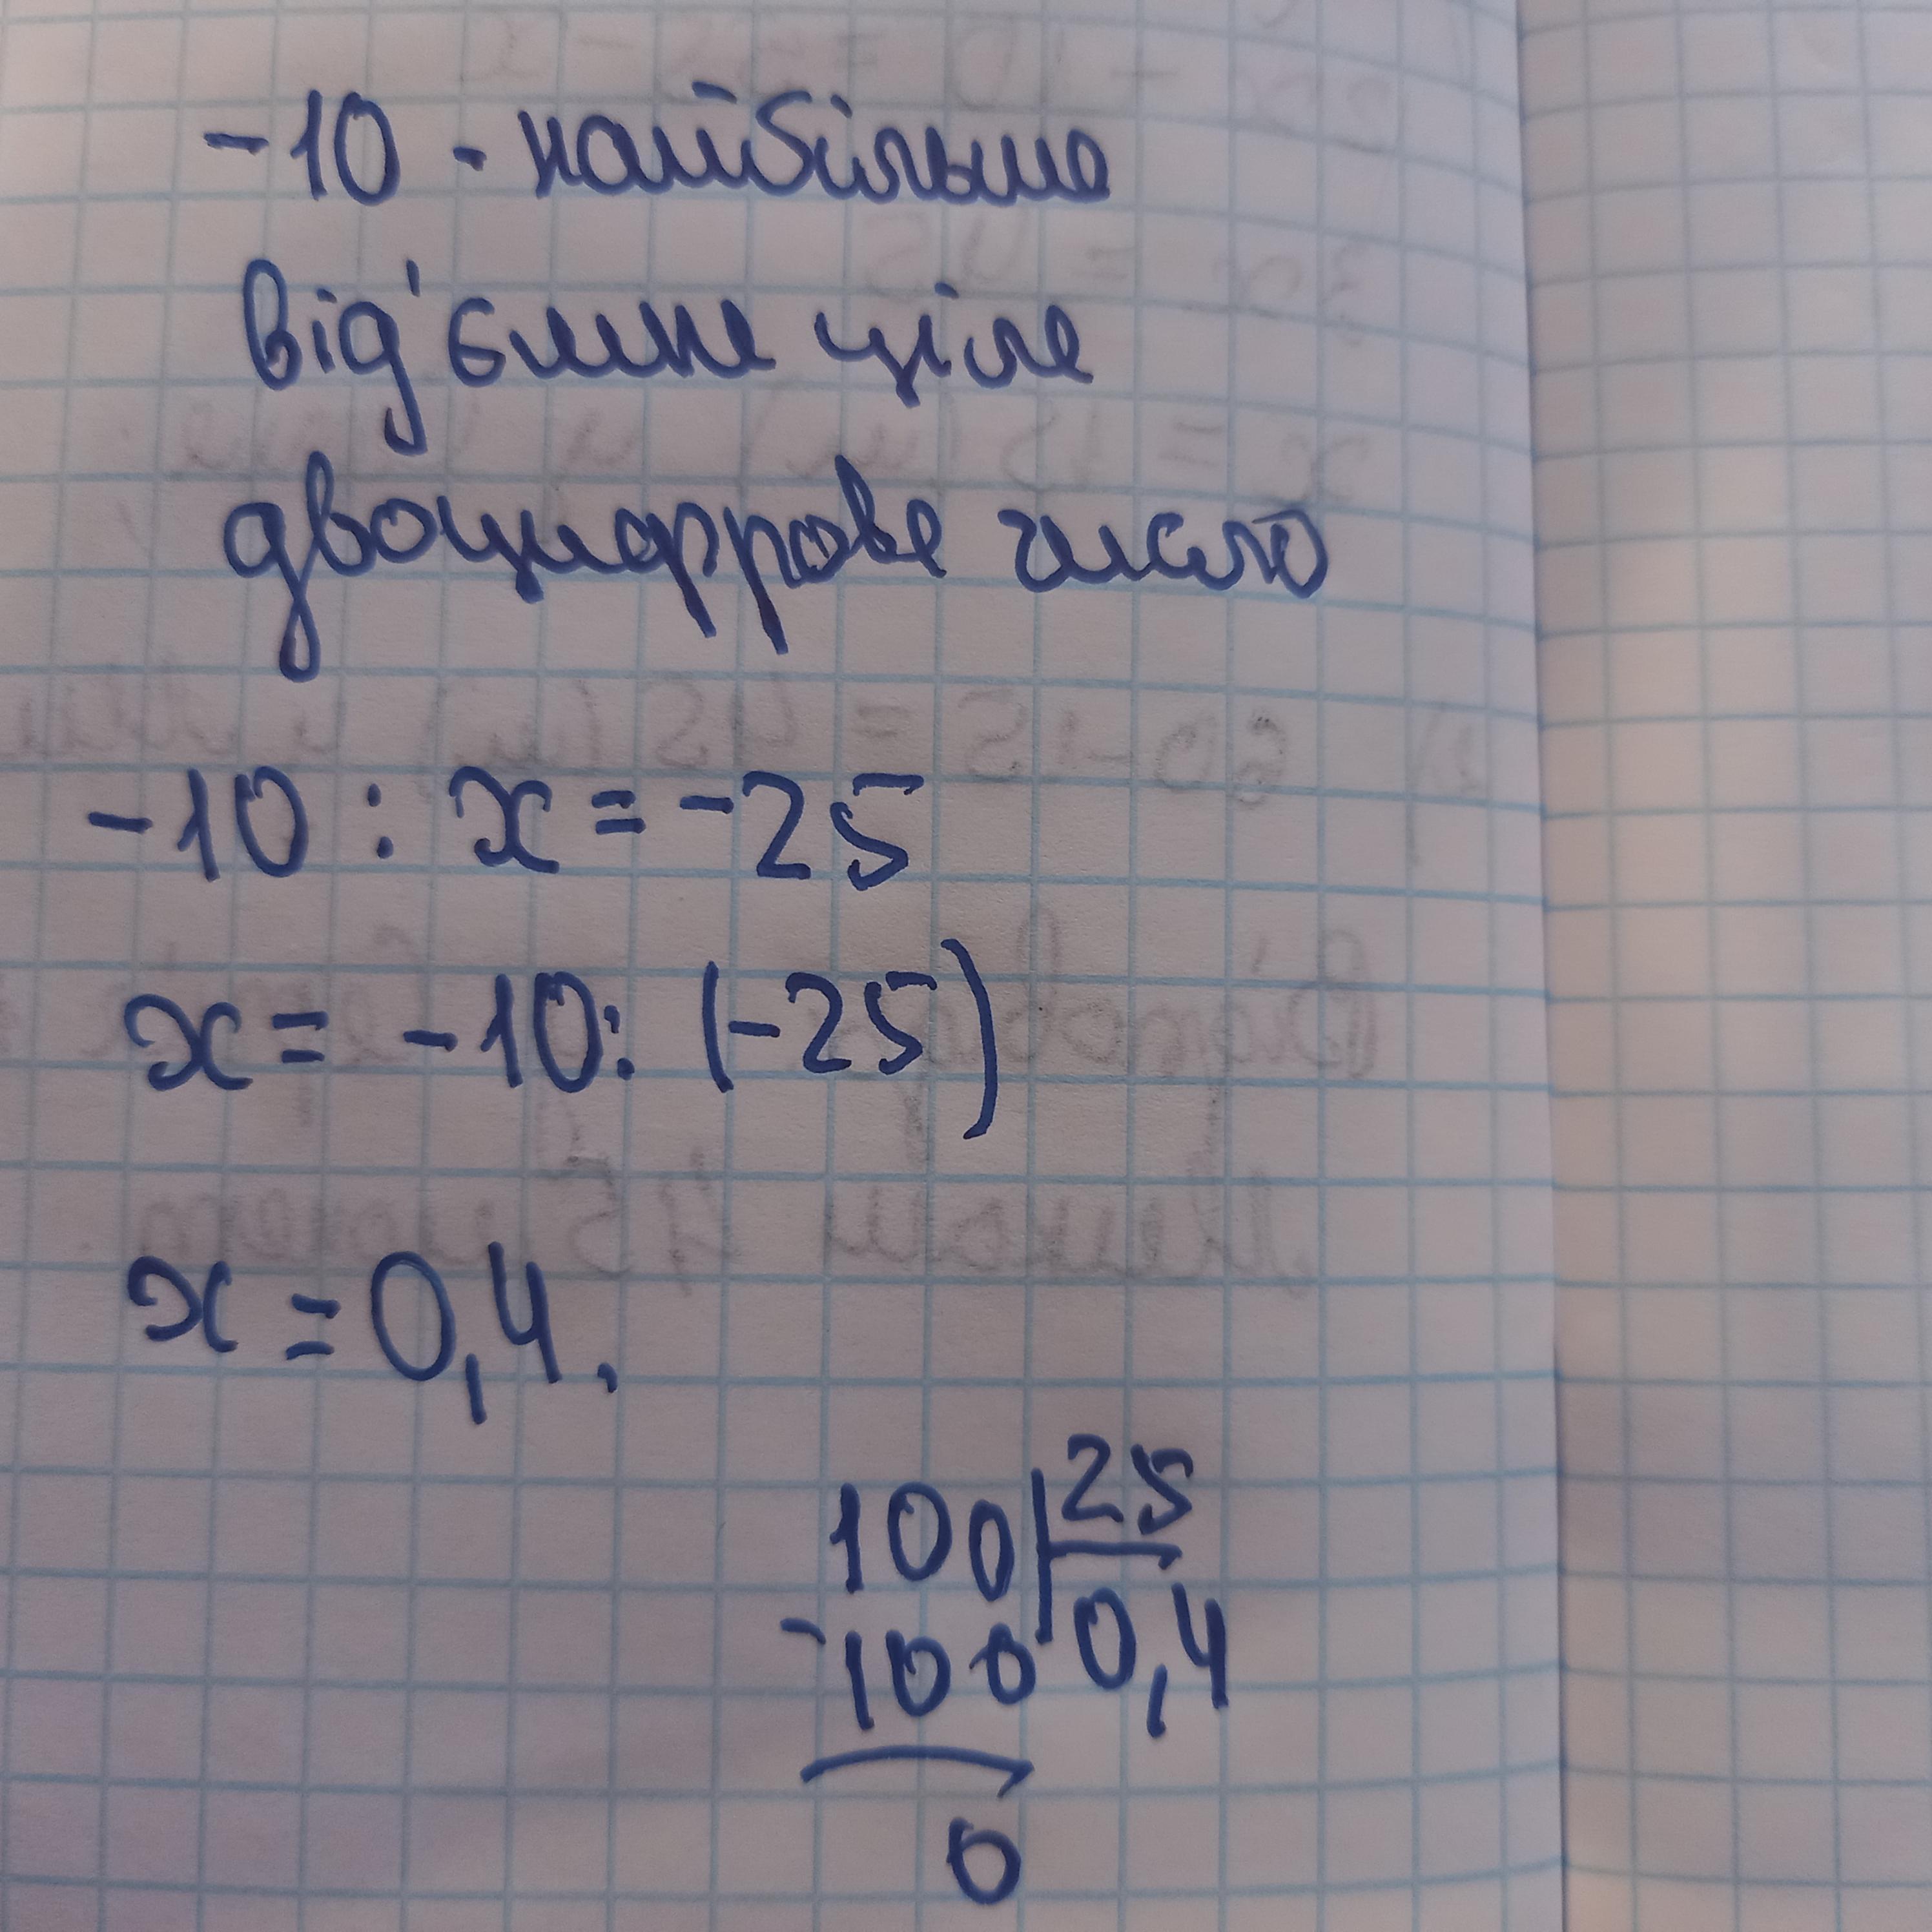 -10 - найбільше
від'ємне ціле
двоцифрове число
-10 : x = -25
x = -10 : (-25)
x = 0,4.
100 | 25
-100 0,4
0